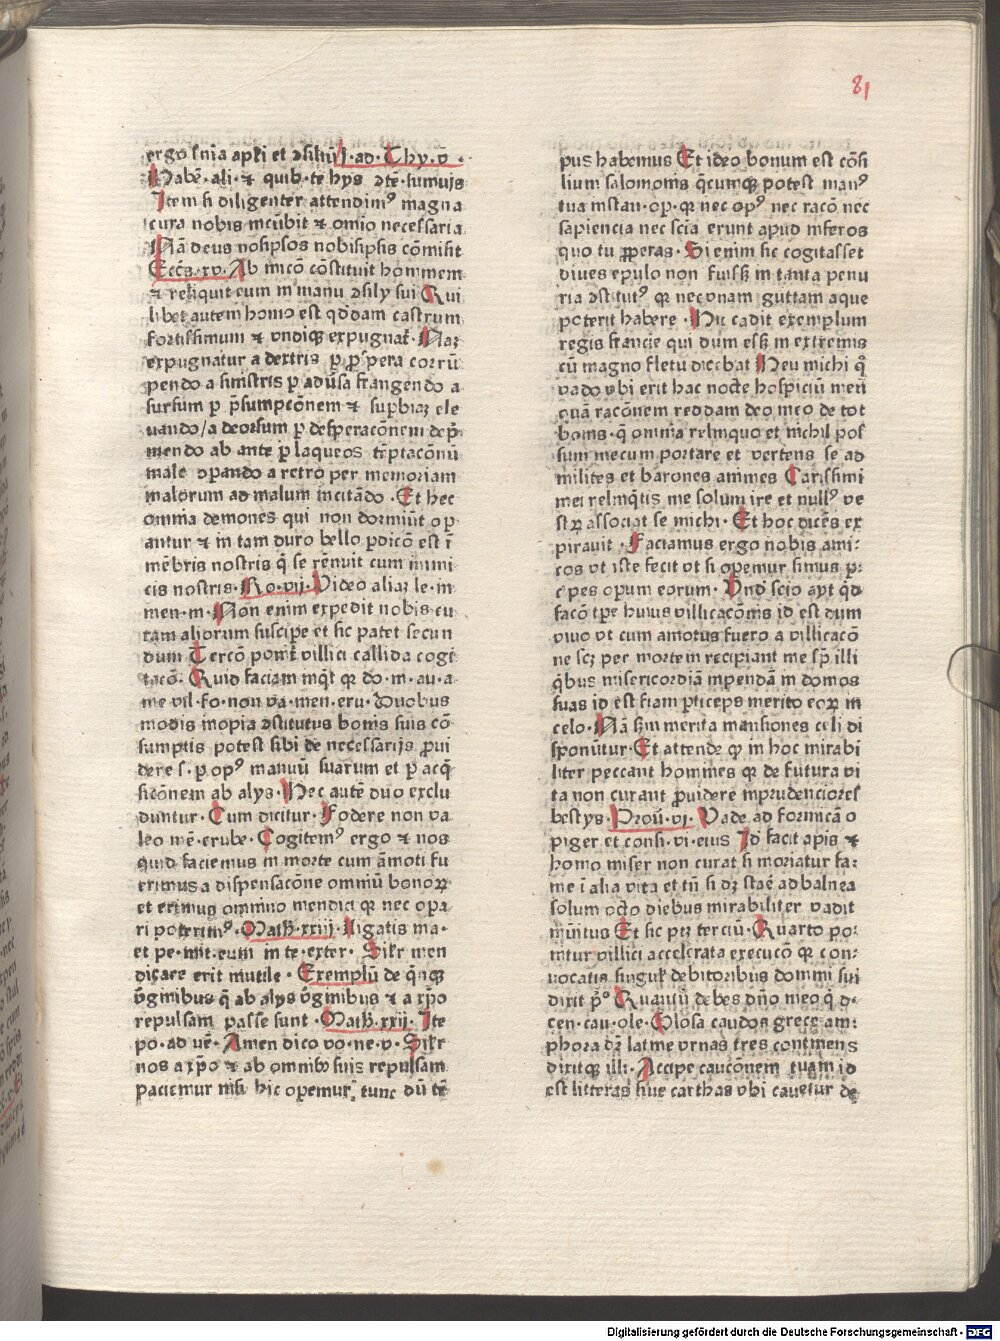 81
ergo snīa apl̄i et ↄsiliū j·ad·Thy·v·
Habē·ali·⁊ quib·te hys ↄtē·sumus
Item si diligenter attendim⁹ magna
cura nobis incūbit ⁊ omīo necessaria
Nā deus nosipsos nobisipsis cōmisit
Ecc̄s·xv·Ab inicō cōstituit hominem
⁊ reliquit eum in manu ↄsily sui Qui
libet autem homo est qd̄dam castrum
fortissimum ⁊ vndiqꝫ expugnat̄·Naꝫ
expugnatur a dextris ꝑ ꝓspera corrū
pendo a sinistris ꝑ adūsa frangendo a
sursum ꝑ p̄sumpcōnem ⁊ suꝑbiaꝫ ele
uando/a deorsum ꝑ desperacōnem dep̄
mendo ab ante ꝑ laqueos tēptacōnū
male oꝑando a retro per memoriam
malorum ad malum incitādo·Et hec
omnia demones qui non dormiūt oꝑ
antur ⁊ in tam duro bello ꝑdicō est ī
mēbris nostris q̄ se rēnuit cum inimi
cis nostris·Ro·vij·Video aliaꝫ le·in
men·m·Non enim expedit nobis cu
ram aliorum suscipe et sic patet secun
dum Tercō ponit̄ villici callida cogi
tacō·Quid faciam inq̄t qꝛ do·m·au·a·
me vil·fo·non va·men·eru·Duobus
modis inopia ↄstitutus bonis suis cō
sumptis potest sibi de necessarijs ꝓui
dere s·ꝑ op⁹ manuū suarum et ꝑ acq̄
sicōnem ab alys·Hec autē duo exclu
duntur·Cum dicitur·Fodere non va
leo mē·erube·Cogitem⁹ ergo ⁊ nos
quid faciemus in morte cum āmoti fu
erimus a dispensacōne omniū bonoꝝ
et erimus omnino mendici qꝛ nec opa
ri poterim⁹·Math̄·xxiij·Ligatis ma·
et pe·mit·eum in te·exter·Silr̄ men
dicare erit inutile·Exemplū de q̄nqꝫ
v̄ginibus q̄ ab alys v̄ginibus ⁊ a xp̄o
repulsam passe sunt·Math̄·xxij·Ite
po·ad vē·Amen dico vo·ne·v·Silr̄
nos a xp̄o ⁊ ab omnibꝫ suis repulsam
paciemur nisi hic opemur tunc dū tē
pus habemus Et ideo bonum est cōsi
lium salomonis q̄cumqꝫ potest man⁹
tua instan·op·qꝛ nec op⁹ nec racō nec
sapiencia nec scīa erunt apud inferos
quo tu ꝓperas·Si enim sic cogitasset
diues epulo non fuissꝫ in tanta penu
ria ↄstitut⁹ qꝛ nec vnam guttam aque
poterit habere·Hic cadit exemplum
regis francie qui dum essꝫ in extremis
cū magno fletu dicebat Heu michi q̄
vado vbi erit hac nocte hospiciū meū
quā racōnem reddam deo meo de tot
bonis·q̄ omnia relinquo et nichil pos
sum mecum portare et vertens se ad
milites et barones ammes Carissimi
mei relinq̄tis me solum ire et null⁹ ve
stꝝ associat se michi·Et hoc dicēs ex
pirauit·Faciamus ergo nobis ami
cos vt iste fecit vt si opemur simus p̄
cipes opum eorum·Vnd̄ scio ayt qd̄
facō tp̄e huius villicacōnis id est dum
viuo vt cum amotus fuero a villicacō
ne scꝫ per mortem recipiant me sp̄ illi
q̄bus misericordiā inpendā in domos
suas id est fiam pticeps merito eoꝝ in
celo·Nā sc̄m merita mansiones celi di
sponūtur·Et attende qꝫ in hoc mirabi
liter peccant homines qꝛ de futura vi
ta non curant ꝓuidere inprudenciores
bestys·Prou̅·vj·Vade ad formicā o
piger et consi·vi·eius Id facit apis ⁊
homo miser non curat si moriatur fa
me ī alia vita et tn̄ si dꝫ staē ad balnea
solum octo diebus mirabiliter vadit
minītus Et sic ptꝫ terciū·Quarto po
nitur villici accelerata execucō qꝛ con
uocatis singul̄ debitoribus domini sui
dixit p̄⁰ Quantū debes dn̄o meo q̄ d·
cen·cau·ole·Glosa caudos grece am
phora dꝛ latine vrnas tres continens
dixitqꝫ illi·Accipe caucōnem tuam id
est litteras siue carthas vbi cauetur de
Digitalisierung gefördert durch die Deutsche Forschungsgemeinschaft · DFG